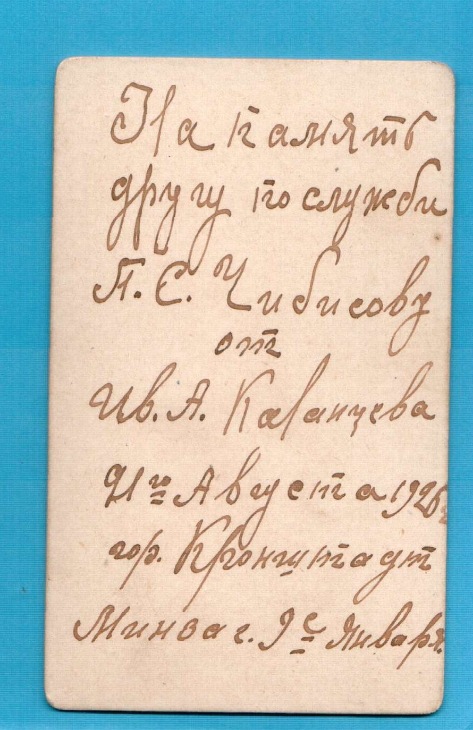 На память
другу по службе
П. С. Чибисову
от
Ив. А. Казанцева
21го Августа 1926 г
гор. Кронштадт
Минзаг. 9е Января.